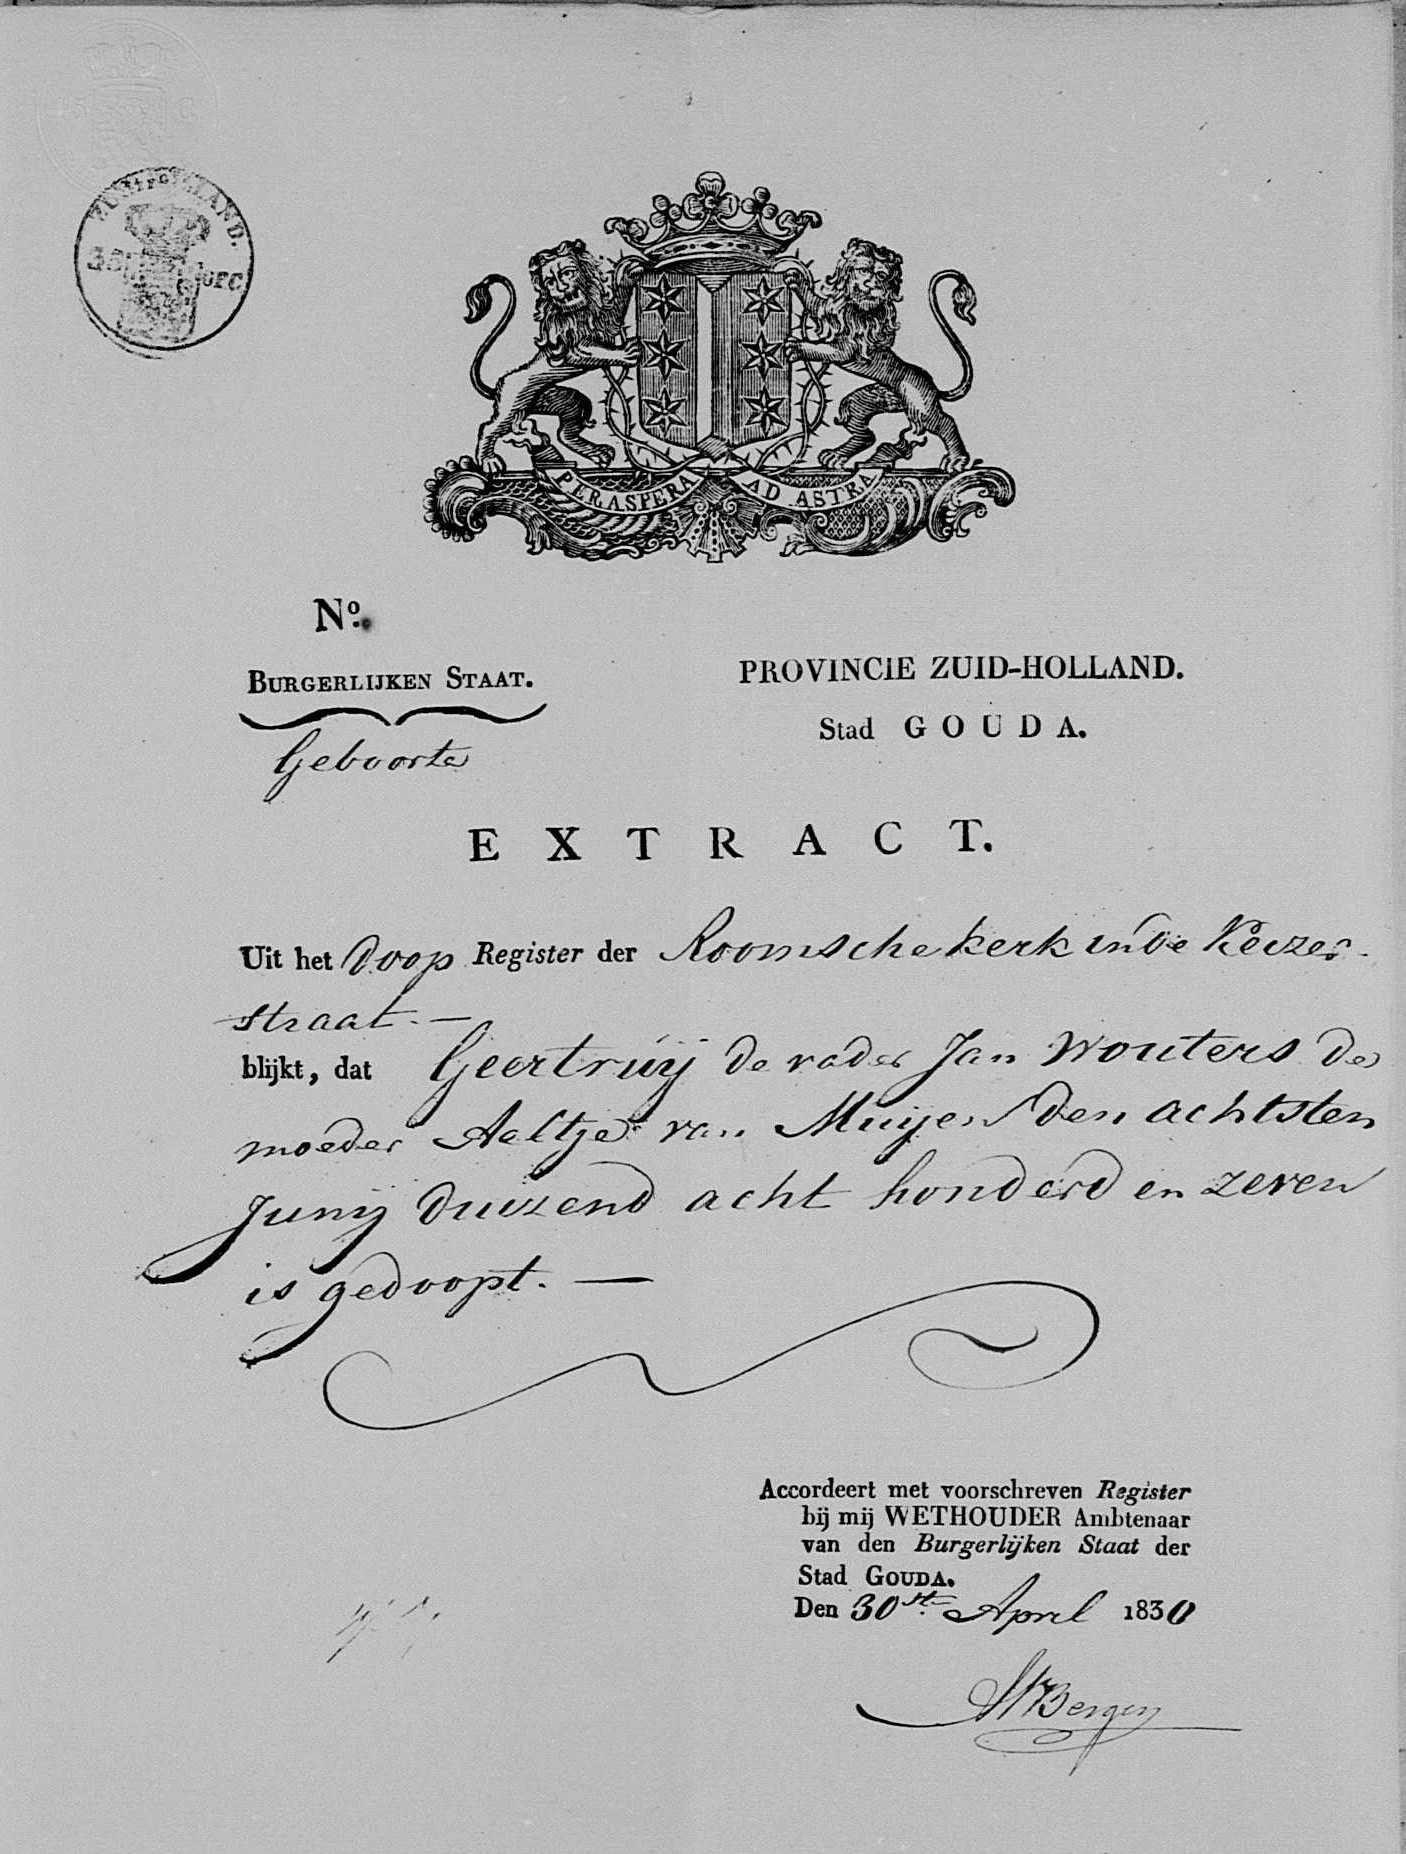 ZUID HOLLAND.
PER ASPERA AD ASTRA
No.
BURGERLIJKEN STAAT.
PROVINCIE ZUID-HOLLAND.
Stad GOUDA.
Geboorte
EXTRACT.
Uit het doop Register der Roomsche kerk in de Keizer-
straat. —
blijkt, dat Geertruij de vader Jan Wouters de
moeder Aeltje van Muijen den achtsten
Junij duizend acht honderd en zeven
is gedoopt. —
Accordeert met voorschreven Register
bij mij WETHOUDER Ambtenaar
van den Burgerlijken Staat der
Stad GOUDA.
Den 30ste April 1830
Bergen